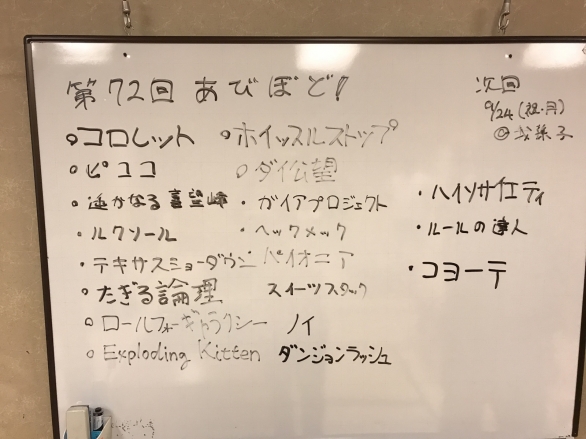 第72回 あびぼど!
次回
9/24(祝・月)
@我孫子
○コロレット
○ピココ
・遥かなる喜望峰
・ルクソール
・テキサスショーダウン
○たぎる論理
○ロールフォーギャラクシー
○Exploding Kitten
○ホイッスルストップ
○ダイ公望
・ガイアプロジェクト
・ヘックメック
パイオニア
スイーツスタック
ノイ
ダンジョンラッシュ
・ハイソサイエティ
・ルールの達人
・コヨーテ